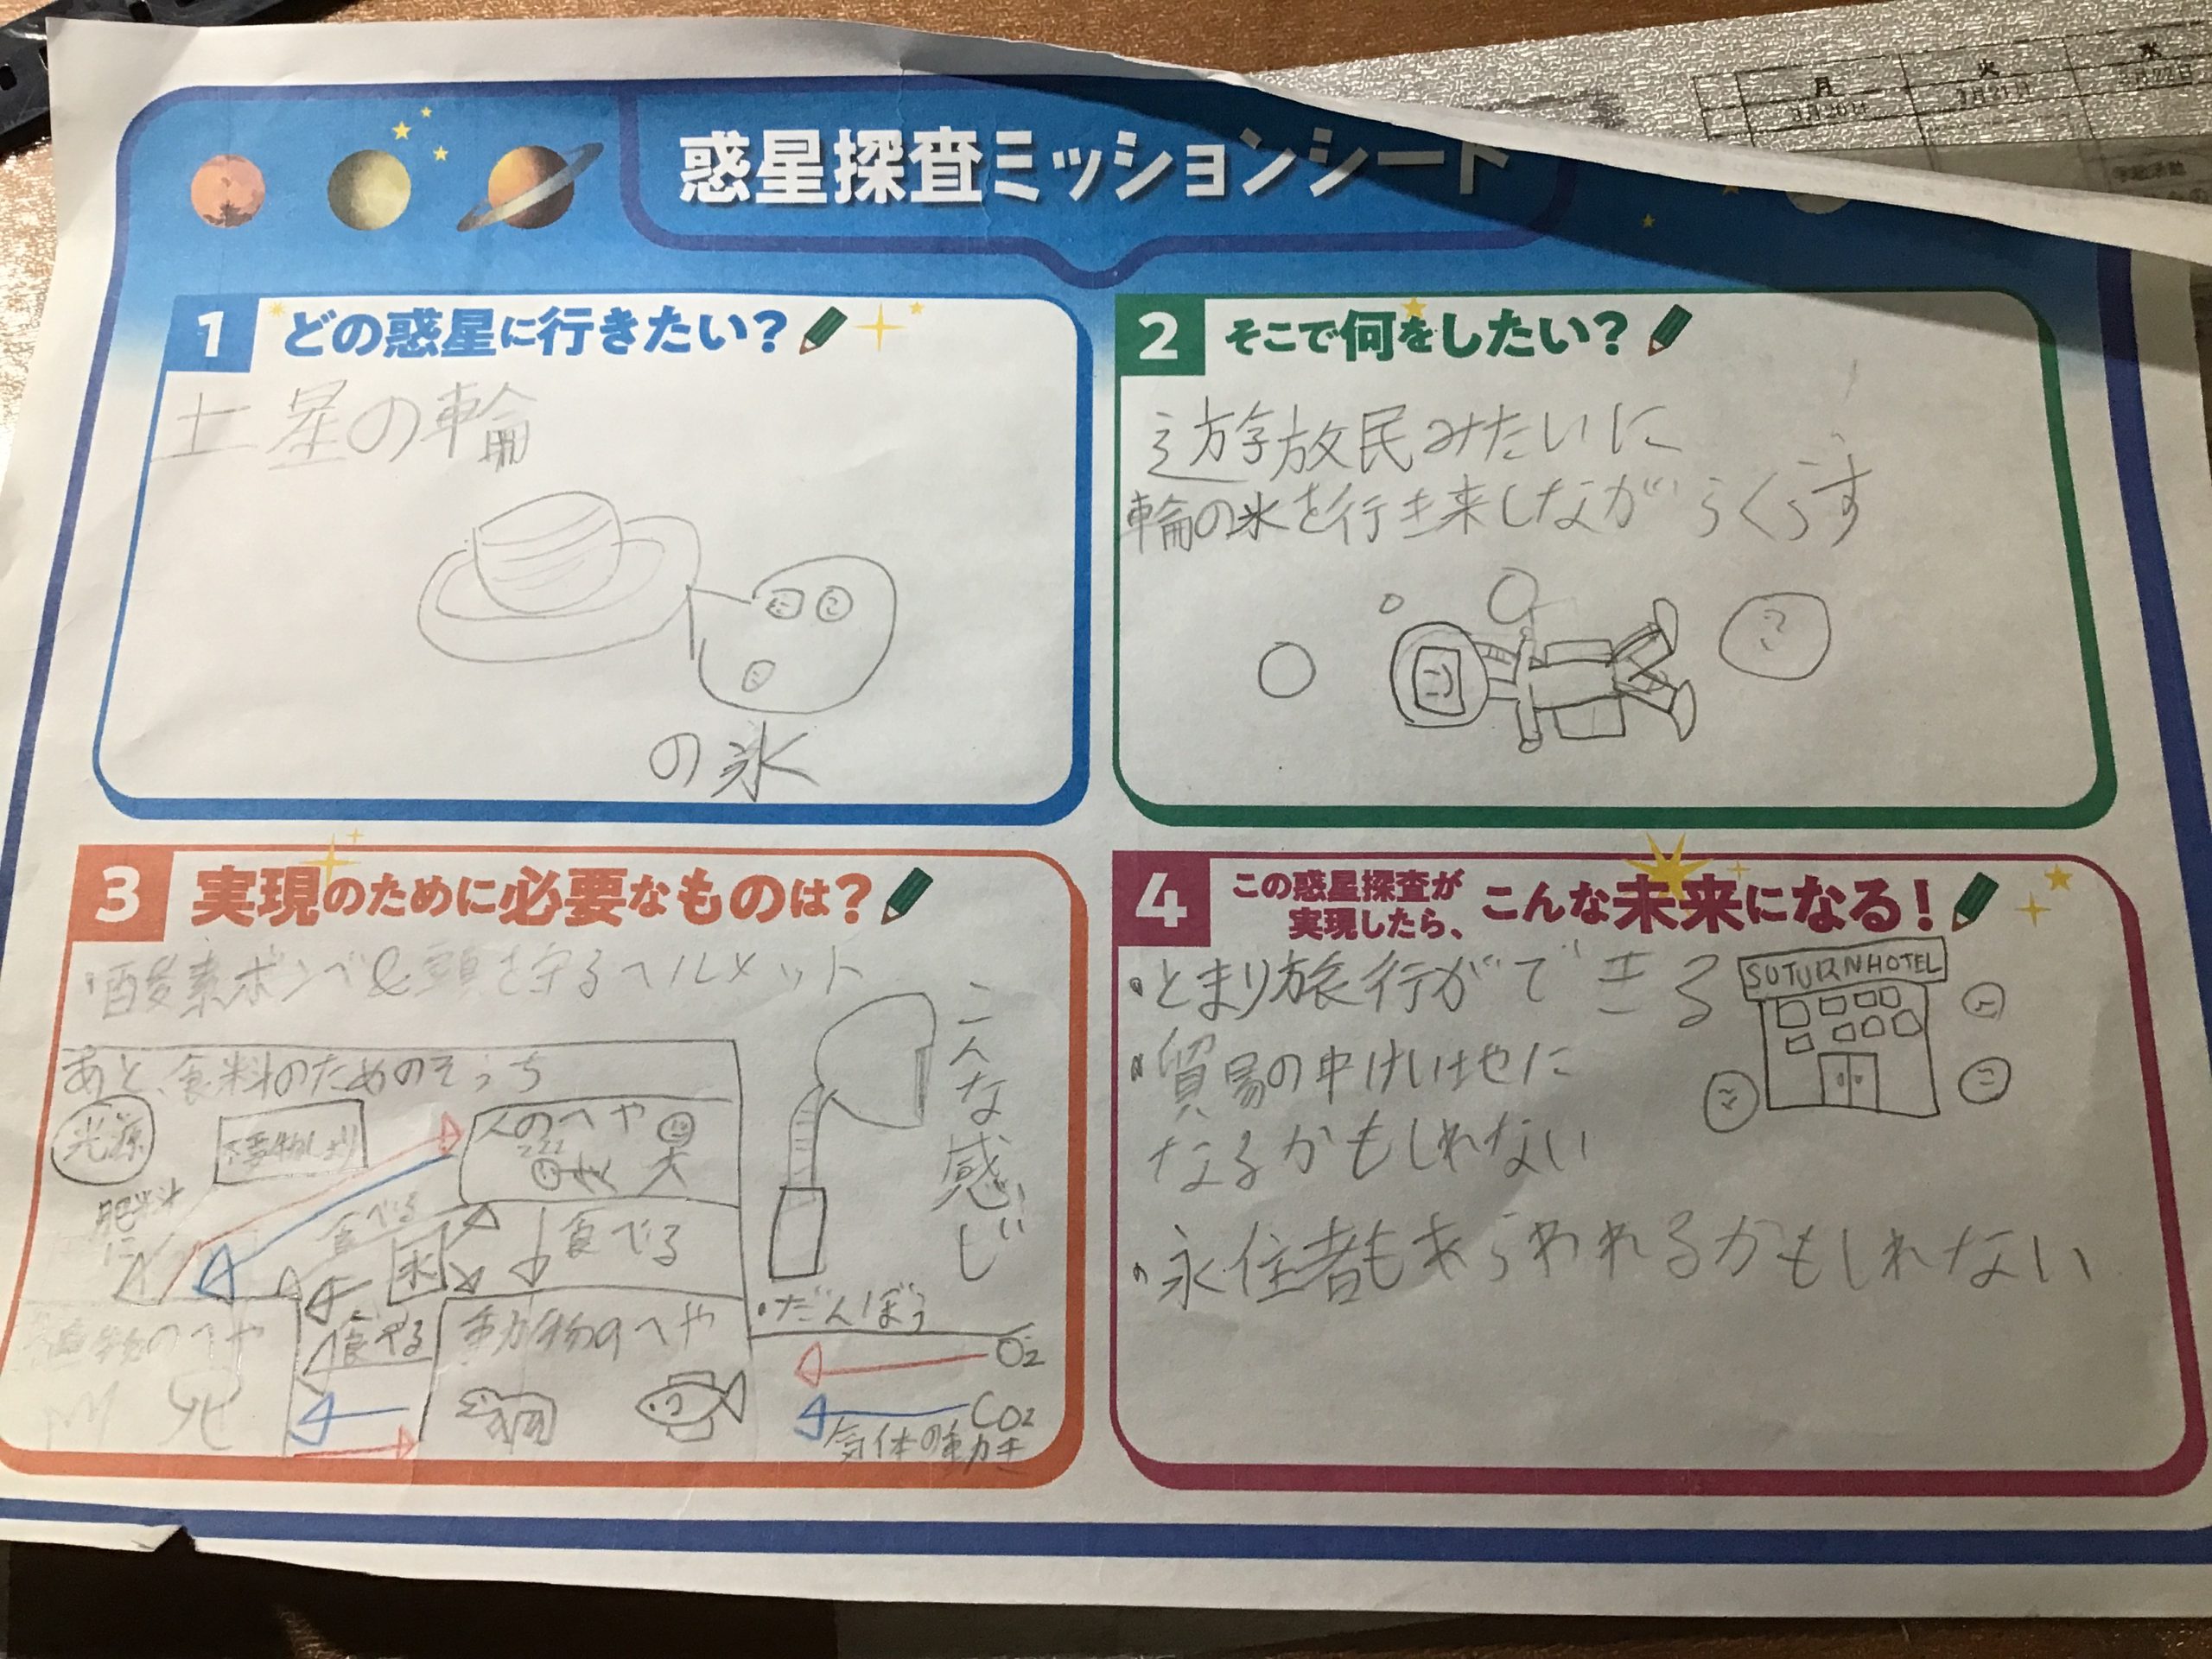 惑星探査ミッションシート
1 どの惑星に行きたい?
土星の輪
の氷
2 そこで何をしたい?
遊放民みたいに
輪の氷を行き来しながらくらす
3 実現のために必要なものは?
・酸素ボンベ&頭を守るヘルメット
こんな感じ
あと、食料のためのそうち
光源
不要物しょり
人のへや
zzz
肥料に
食べる
水
食べる
植物のへや
食べる
動物のへや
・だんぼう
O2
CO2
気体の動き
4 この惑星探査が
実現したら、こんな未来になる!
・とまり旅行ができる
SUTURNHOTEL
・貿易の中けい地に
なるかもしれない
・永住者もあらわれるかもしれない
月
火
水
3月20日
3月21日